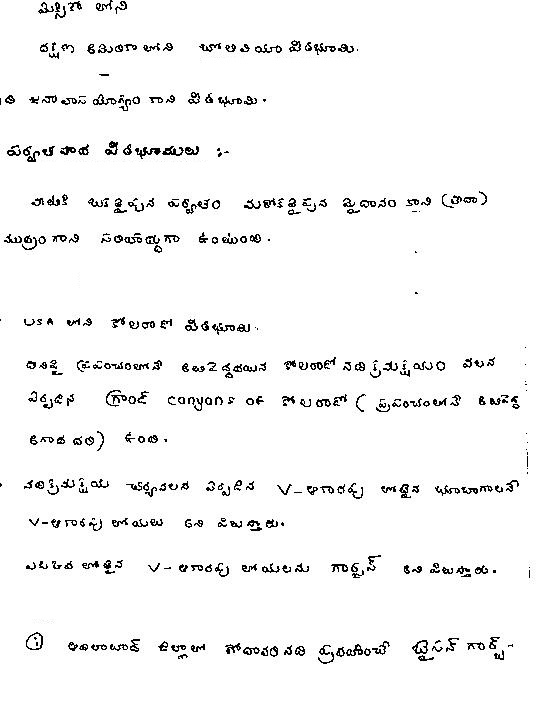 మెక్సికో లోని
దక్షిణ అమెరికా లోని బోలీవియా పీఠభూమి.
ఇది జనావాస యోగ్యం కాని పీఠభూమి.
పర్వతపాద పీఠభూములు :-
వాటికి ఒకవైపున పర్వతం మరొకవైపున మైదానం కాని (లేదా)
సముద్రం గాని సరిహద్దుగా ఉంటుంది.
USA లోని కోలరాడో పీఠభూమి.
దీనిపై ప్రపంచంలోనే అతిపెద్దదయిన కోలరాడో నది క్రమక్షయం వలన
ఏర్పడిన గ్రాండ్ canyons of కోలరాడో ( ప్రపంచంలోనే అతిపెద్ద
అగాధ దరి) ఉంది.
నదీక్రమక్షయ చర్యవలన ఏర్పడిన V-ఆకారపు లోతైన భూభాగాలనే
V-ఆకారపు లోయలు అని పిలుస్తారు.
లోతైన V- ఆకారపు లోయలను గార్జెస్ అని పిలుస్తారు.
ఆదిలాబాద్ జిల్లాలో గోదావరి నది ప్రవహించే బైసన్ గార్జ్-